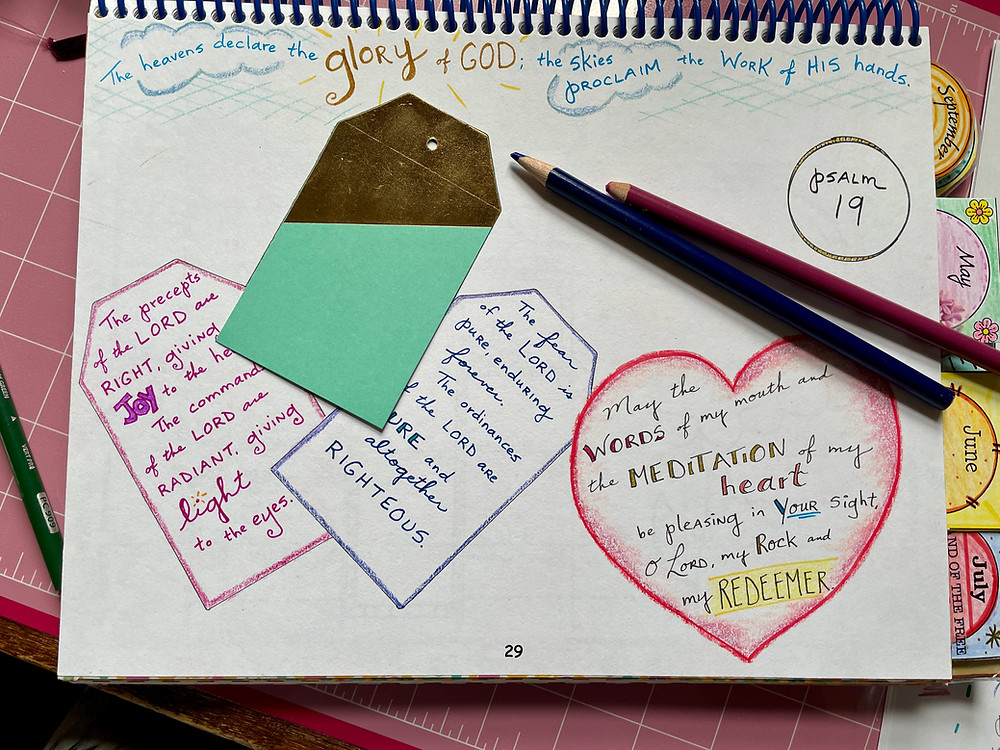 The heavens declare the glory of GOD; the skies PROCLAIM the WORK of HIS hands.
PSALM
19
The precepts
of the LORD are
RIGHT, giving
JOY to the
The
of the LORD are
RADIANT, giving
light
to the eyes.
The fear
of the LORD is
pure, enduring
forever.
The ordinances
of the LORD are
and
altogether
RIGHTEOUS.
May the
WORDS of my mouth and
the MEDITATION of my
heart
be pleasing in YOUR sight,
O LORD, my Rock and
my REDEEMER.
29
September
May
June
July
ND OF THE FREE
PC909